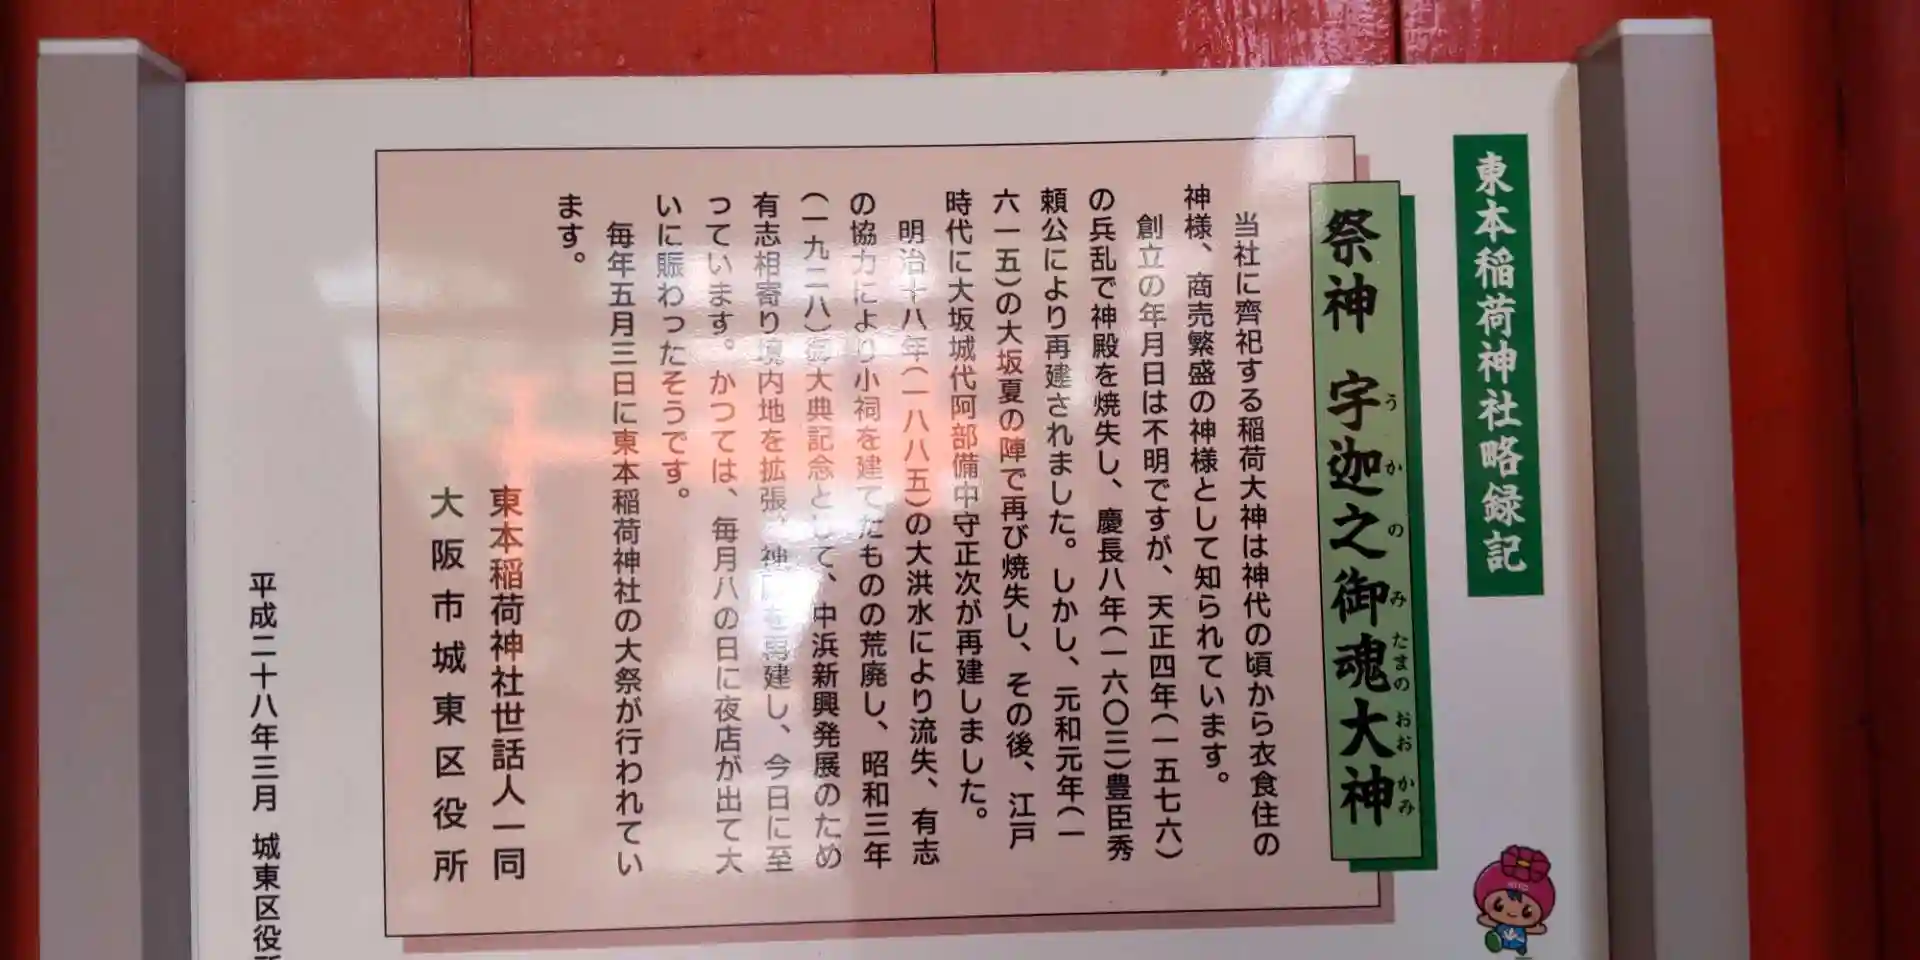 東本稲荷神社略録記
祭神 宇迦之御魂大神
うかのみたまのおおかみ
当社に齊祀する稲荷大神は神代の頃から衣食住の
神様、商売繁盛の神様として知られています。
創立の年月日は不明ですが、天正四年(一五七六)
の兵乱で神殿を焼失し、慶長八年(一六〇三)豊臣秀
頼公により再建されました。しかし、元和元年(一
六一五)の大坂夏の陣で再び焼失し、その後、江戸
時代に大坂城代阿部備中守正次が再建しました。
明治十八年(一八八五)の大洪水により流失、有志
の協力により小祠を建てたものの荒廃し、昭和三年
(一九二八)御大典記念として、中浜新興発展のため
有志相寄り境内地を拡張、神殿を再建し、今日に至
っています。かつては、毎月八の日に夜店が出て大
いに賑わったそうです。
毎年五月三日に東本稲荷神社の大祭が行われてい
ます。
東本稲荷神社世話人一同
大阪市城東区役所
平成二十八年三月 城東区役所